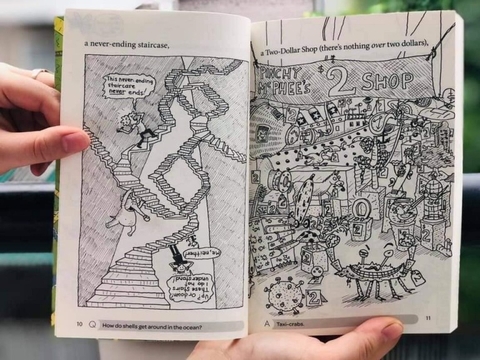 a never-ending staircase,
This never-ending
staircase
never ends!
Me, neither!
Up? Or down?
I do not
understand
These stairs
10 Q How do shells get around in the ocean?
a Two-Dollar Shop (there's nothing over two dollars),
PINCHY
McPHEE'S
$2 SHOP
2
2
A Taxi-crabs. 11